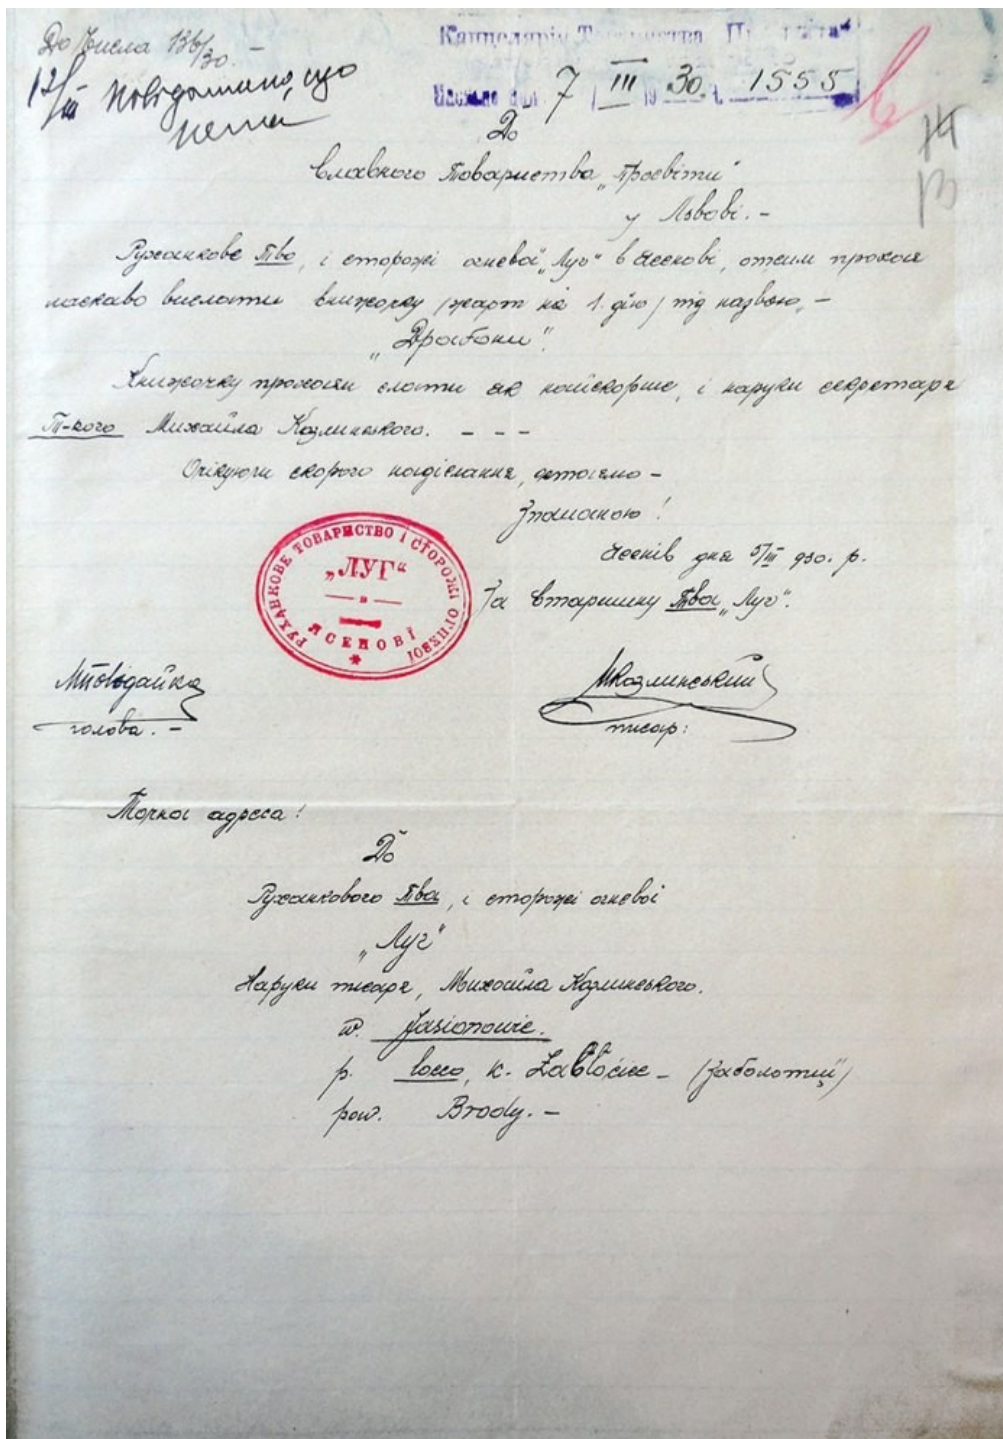 До Числа 136/30. –
12/III Повідомлено, що
нема
Канцелярія Товариства „Просвіта“
7 III 1930. 1555
До
Славного Товариства „Просвіти“
у Львові. –
Руханкове Тво, і сторожі огневої „Луг“ в Ясенові, отсим просить
ласкаво вислати книжочку /жарт на 1. дію/ під назвою, –
„Драбани“.
Книжочку просить слати як найскорше, і наруки секретаря
Т-кого Михайла Козлинського. – – –
Очікуючи скорого надіслання, остаємо –
З пошаною!
Ясенів дня 5/III 930. р.
За Старшину Тва „Луг“.
РУХАНКОВЕ ТОВАРИСТВО І СТОРОЖІ ОГНЕВОЇ
„ЛУГ“
в
ЯСЕНОВІ
МПовідайко
голова. –
МКозлинський
писар:
Точна адреса!
До
Руханкового Тва, і сторожі огневої
„Луг“
Наруки писаря, Михайла Козлинського.
w. Jasionowie.
p. loco, k. Zabłociec – /Заболотці/
pow. Brody. –